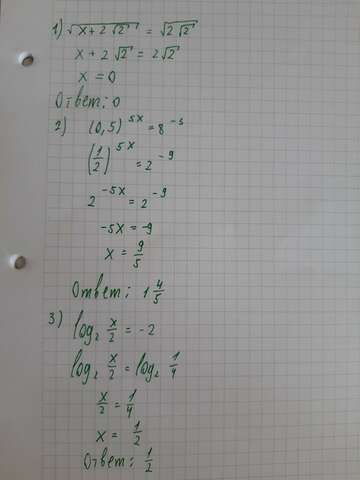 1) √(x + 2√2) = √(2√2)
x + 2√2 = 2√2
x = 0
Ответ: 0
2) (0,5)^5x = 8^-3
(1/2)^5x = 2^-9
2^-5x = 2^-9
-5x = -9
x = 9/5
Ответ: 1 4/5
3) log₂ x/2 = -2
log₂ x/2 = log₂ 1/4
x/2 = 1/4
x = 1/2
Ответ: 1/2